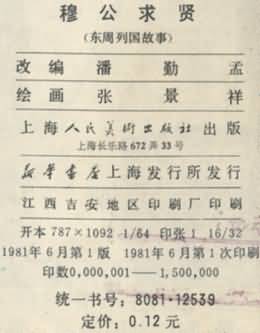 穆公求贤
(东周列国故事)
改编 潘勤孟
绘画 张景祥
上海人民美術出版社出版
上海长乐路672弄33号
新华书店上海发行所发行
江西吉安地区印刷厂印刷
开本 787×1092 1/64 印张 1 16/32
1981年6月第1版 1981年6月第1次印刷
印数0,000,001——1,500,000
统一书号: 8081·12539
定价: 0.12 元